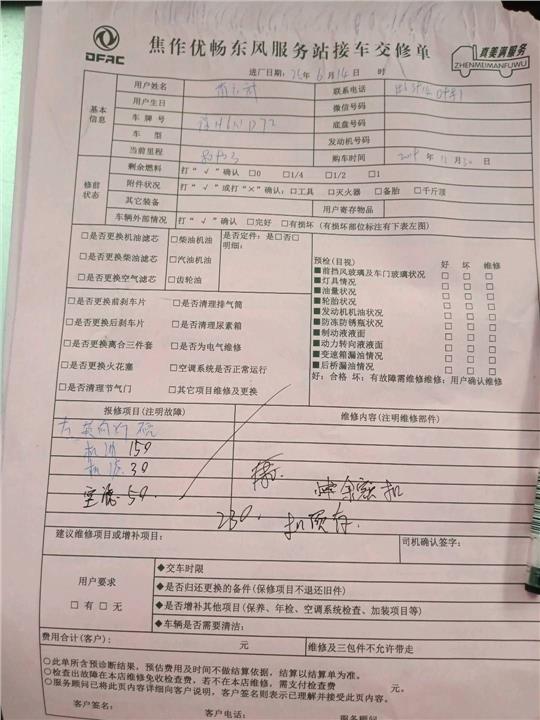 DFAC
焦作优畅东风服务站接车交修单
真美满服务
ZHENMEIMANFUWU
进厂日期：25年6月14日 时
基本信息
用户姓名
联系电话
用户生日
微信号码
车牌号
底盘号码
车型
发动机号码
当前里程
购车时间 年 11月30日
修前状态
剩余燃料 打“√”确认 □0 □1/4 □1/2 □1
附件状况 打“√”或打“×”确认：□工具 □灭火器 □备胎 □千斤顶
其它装备
用户寄存物品
车辆外部情况 打“√”确认 □完好 □有损坏（有损坏部位标注有下表左图）
□是否更换机油滤芯 □柴油机油
□是否更换柴油滤芯 □汽油机油
□是否更换空气滤芯 □齿轮油
是否定件：是□否□
明细：
□是否更换前刹车片 □是否清理排气筒
□是否更换后刹车片 □是否清理尿素箱
□是否更换离合三件套 □是否为电气维修
□是否更换火花塞 □空调系统是否正常运行
□是否清理节气门 □其它项目维修及更换
预检（目视） 好 坏 维修
■前挡风玻璃及车门玻璃状况 □ □ □
■灯具情况 □ □ □
■油量状况 □ □ □
■轮胎状况 □ □ □
■发动机机油状况 □ □ □
■防冻防锈瓶状况 □ □ □
■制动液液面 □ □ □
■动力转向液液面 □ □ □
■变速箱漏油情况 □ □ □
■后桥漏油情况 □ □ □
好：合格 坏：有故障需维修维修：用户确认维修
报修项目（注明故障）
维修内容（注明维修部件）
机油 150
机滤 30
空滤 50
余额扣
230.
扣预存.
建议维修项目或增补项目：
司机确认签字：
用户要求
□ 有 □ 无
◆交车时限
◆是否归还更换的备件（保修项目不退还旧件）
◆是否增补其他项目（保养、年检、空调系统检查、加装项目等）
◆车辆是否需要清洁：
费用合计（客户）： 元
维修及三包件不允许带走
○此单所含预诊断结果，预估费用及时间不做结算依据，结算以结算单为准。
○检查出故障在本店维修免收检查费，若不在本店维修，需支付检查费 元。
○服务顾问已将此页内容详细向客户说明，客户签名则表示已理解并接受此页内容。
客户签名： 客户电话： 服务顾问